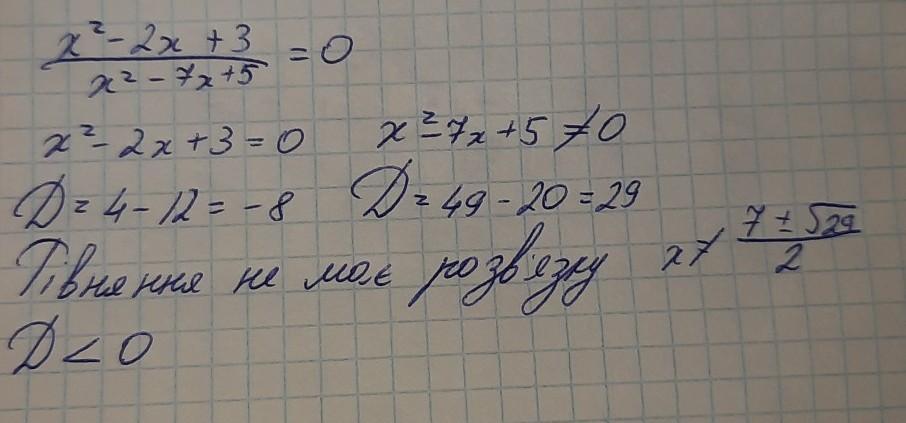 x² - 2x + 3 / x² - 7x + 5 = 0
x² - 2x + 3 = 0    x² - 7x + 5 ≠ 0
D = 4 - 12 = -8    D = 49 - 20 = 29
Рівняння не має розв'язку    x ≠ (7 ± √29) / 2
D < 0